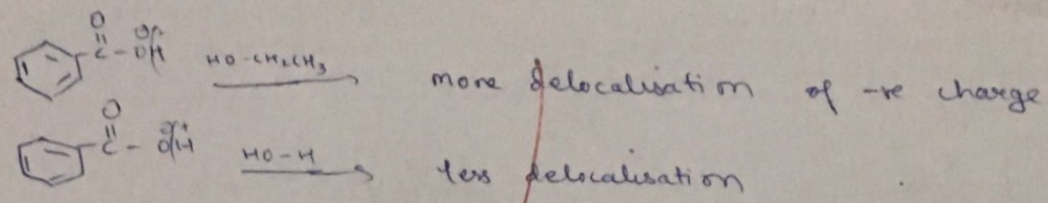 O
C - OH HO-CH₂CH₃ more delocalisation of -ve charge
O
C - OH HO-H less delocalisation